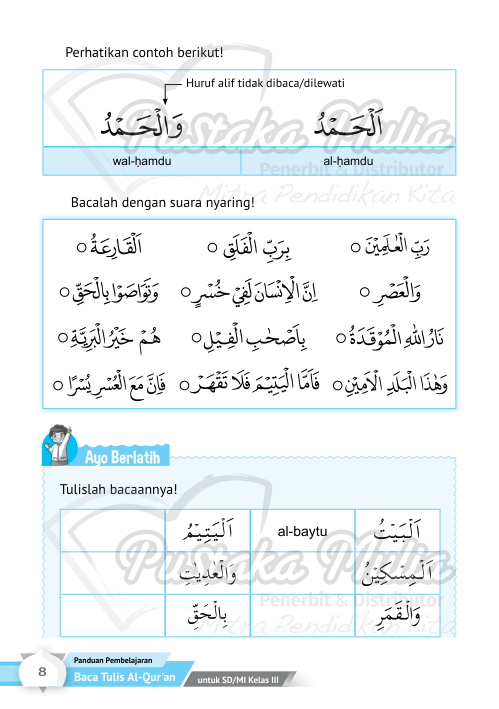 Perhatikan contoh berikut!
Huruf alif tidak dibaca/dilewati
اَلْحَمْدُ وَالْحَمْدُ
wal-ḥamdu al-ḥamdu
Pustaka Mulia
Penerbit & Distributor
Mitra Pendidikan Kita
Bacalah dengan suara nyaring!
رَبِّ الْعٰلَمِيْنَ ○ بِرَبِّ الْفَلَقِ ○ اَلْقَارِعَةُ ○
وَالْعَصْرِ ○ اِنَّ الْاِنْسَانَ لَفِيْ خُسْرٍ ○ وَتَوَاصَوْا بِالْحَقِّ ○
نَارُ اللهِ الْمُوْقَدَةُ ○ بِاَصْحٰبِ الْفِيْلِ ○ هُمْ خَيْرُ الْبَرِيَّةِ ○
وَهٰذَا الْبَلَدِ الْاَمِيْنِ ○ فَاَمَّا الْيَتِيْمَ فَلَا تَقْهَرْ ○ فَاِنَّ مَعَ الْعُسْرِ يُسْرًا ○
Ayo Berlatih
Tulislah bacaannya!
اَلْبَيْتُ al-baytu اَلْيَتِيْمُ
اَلْمِسْكِيْنُ وَالْعٰدِيٰتِ
وَالْقَمَرِ بِالْحَقِّ
Pustaka Mulia
Penerbit & Distributor
Mitra Pendidikan Kita
8
Panduan Pembelajaran
Baca Tulis Al-Qur'an
untuk SD/MI Kelas III